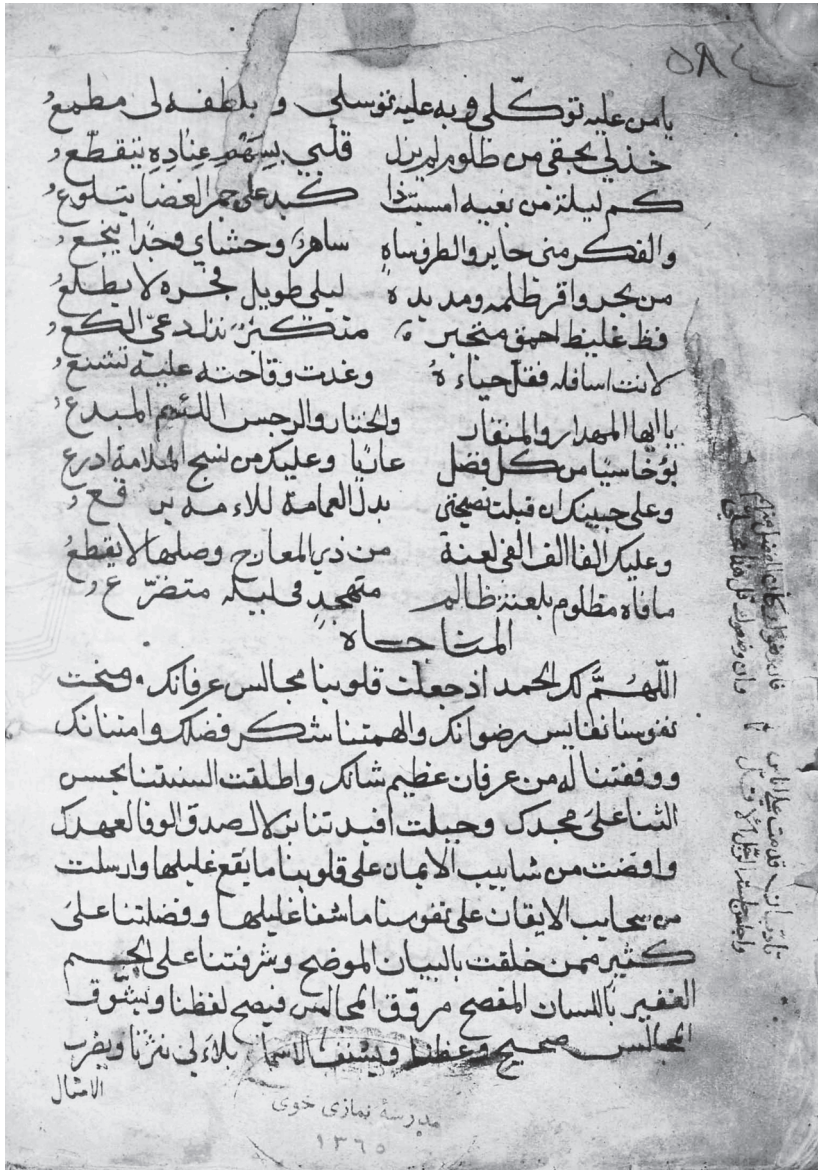 ٥٨٤
يا من عليه توكّلي وبه عليه توسلي وبلطفه لي مطمعُ
خذ لي بحقي من ظلوم لم يزل قلبي بسهم عناده يتقطّعُ
كم ليلة من بغيه امسيت ذا كبد على جمر الغضا يتلوعُ
والفكر مني حاير والطرف ساهٍ ساهر وحشاي وجدا ينجعُ
من بحر وافر ظلمه ومديده ليلي طويل فجره لا يطلعُ
فظ غليظ احمق متجبر متكبر نذل دعيّ الكعُ
لانت اسافله فقل حياءهُ وغدت وقاحته عليه تشنعُ
يا ايها المهدار والمنقار والخنار والرجس اللئيم المبدعُ
بؤ خاسيا من كل فضل عاريا وعليك من نسج الملامة ادرع
وعلى جبينك ان قبلت نصيحتي بدل العمامة للاءمه برقعُ
وعليك الفا الف الفي لعنة من ذي المعارج وصلها لا يقطعُ
ما فاه مظلوم بلعنة ظالم متهجد في ليله متضرّعُ
المناجاه
اللّهمَّ لك الحمد اذ جعلت قلوبنا مجالس عرفانك ومنحت
نفوسنا نفايس رضوانك والهمتنا شكر فضلك وامتنانك
ووفقتنا له من عرفان عظيم شانك واطلقت السنتنا بحسن
الثنا على مجدك وجبلت افيدتنا بزلال صدق الوفا لعهدك
وافضت من شابيب الايمان على قلوبنا ما يقع غليلها وارسلت
من سحايب الايقان على نفوسنا ما شفا غليلها وفضلتنا على
كثير ممن خلقت بالبيان الموضح وشرفتنا على الجم
الغفير باللسان المفصح مروّق المجالس فيصح لفظنا ويشوّق
المجالس صحيح وعظنا ويشنف الاسما بلاءلي نثرنا ويضرب
الامثال
مدرسهٔ نمازی خوی
١٣٦٥